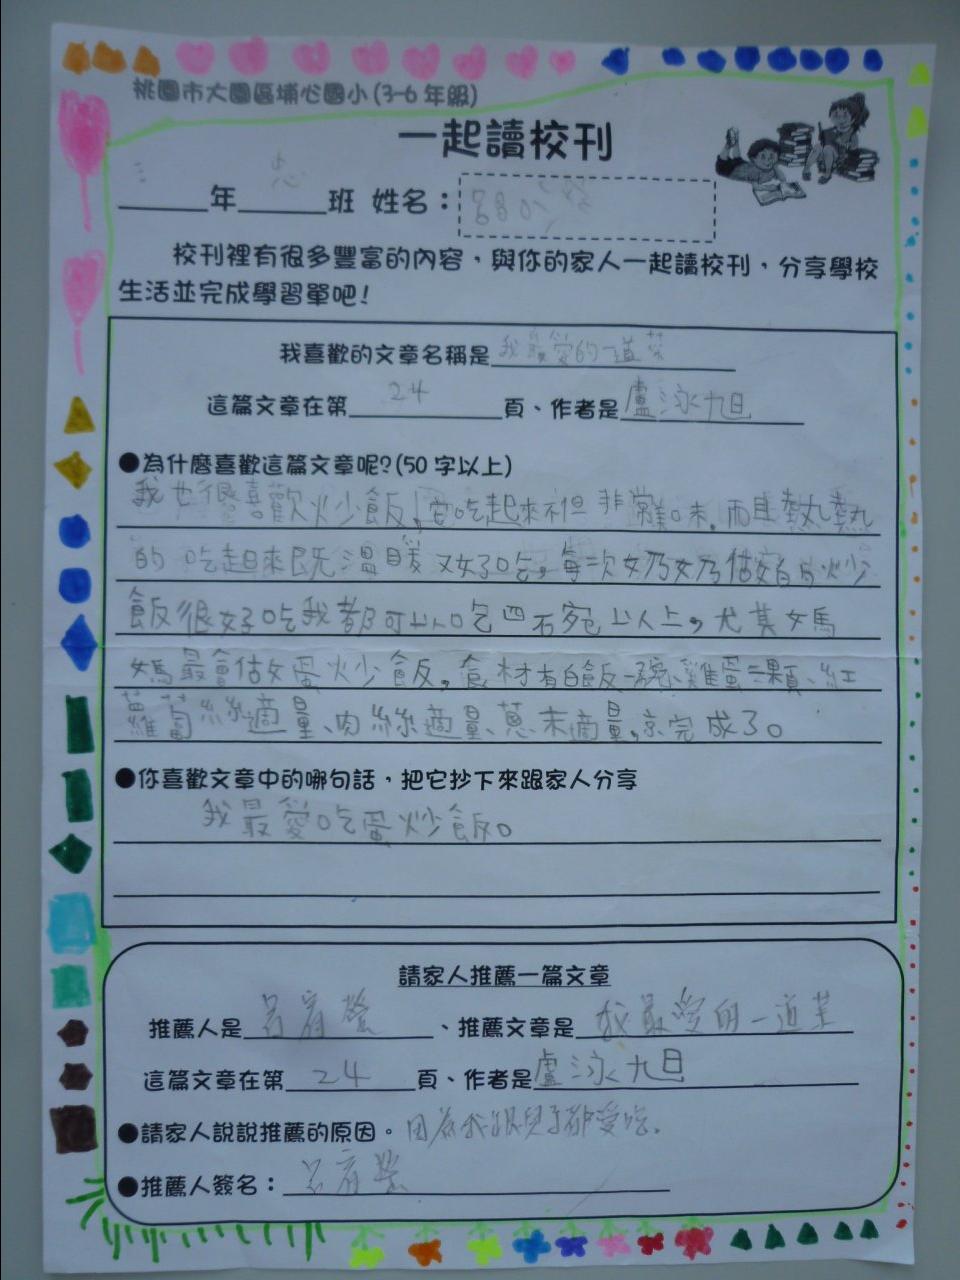 桃園市大園區埔心國小(3-6年級)
一起讀校刊
三年忠班 姓名：
校刊裡有很多豐富的內容，與你的家人一起讀校刊，分享學校
生活並完成學習單吧！
我喜歡的文章名稱是我最愛的一道菜
這篇文章在第24頁、作者是盧泳旭
●為什麼喜歡這篇文章呢?(50字以上)
我也很喜歡炒飯，它吃起來不但非常美味，而且熱熱
的吃起來既溫暖又好吃，每次奶奶做的炒
飯很好吃我都可以吃四碗以上，尤其媽
媽最會做蛋炒飯，食材有白飯一碗、雞蛋二顆、紅
蘿蔔絲適量、肉絲適量、蔥末適量，就完成了。
●你喜歡文章中的哪句話，把它抄下來跟家人分享
我最愛吃蛋炒飯。
請家人推薦一篇文章
推薦人是呂、推薦文章是我最愛的一道菜
這篇文章在第24頁、作者是盧泳旭
●請家人說說推薦的原因。因為我跟兒子都愛吃。
●推薦人簽名：呂